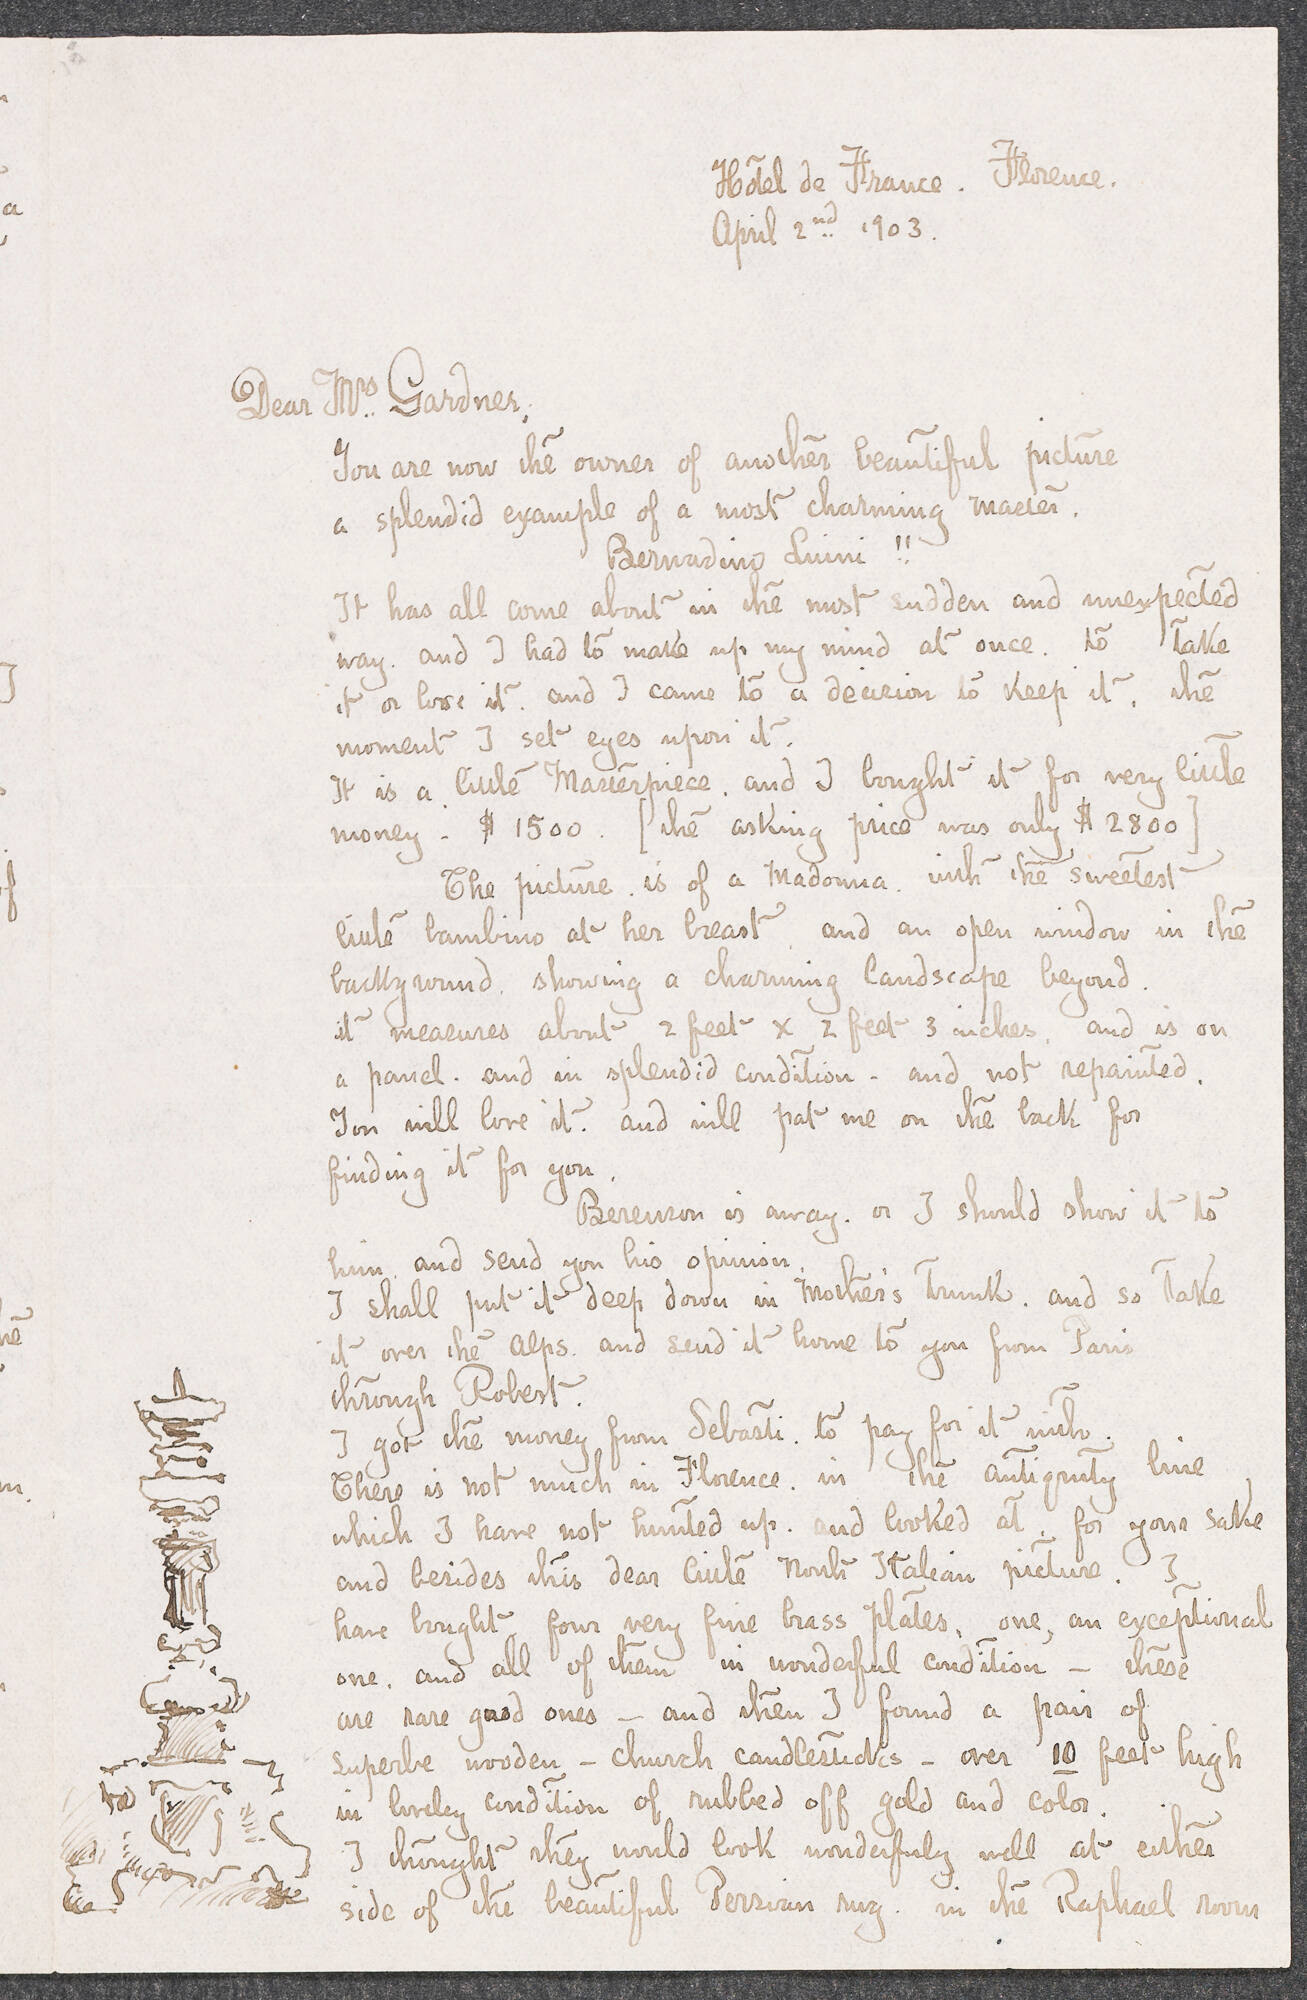 Hôtel de France. Florence.
April 2nd 1903.
Dear Mrs. Gardner,
You are now the owner of another beautiful picture
a splendid example of a most charming master.
Bernadino Luini!!
It has all come about in the most sudden and unexpected
way. and I had to make up my mind at once. to take
it or lose it. and I came to a decision to keep it, the
moment I set eyes upon it.
It is a little Masterpiece. and I bought it for very little
money - $1500. [the asking price was only $2800]
The picture. is of a Madonna. with the sweetest
little bambino at her breast, and an open window in the
background. showing a charming landscape beyond.
it measures about 2 feet x 2 feet 3 inches. and is on
a panel. and in splendid condition - and not repainted.
You will love it. and will pat me on the back for
finding it for you.
Berenson is away. or I should show it to
him. and send you his opinion.
I shall put it deep down in Mother's trunk. and so take
it over the Alps. and send it home to you from Paris
through Robert.
I got the money from Sebasti. to pay for it with.
There is not much in Florence. in the antiquity line
which I have not hunted up. and looked at, for your sake
and besides this dear little North Italian picture. I
have bought four very fine brass plates, one, an exceptional
one. and all of them in wonderful condition - these
are rare good ones - and then I found a pair of
superbe wooden - church candlesticks - over 10 feet high
in loveley condition of rubbed off gold and color.
I thought they would look wonderfuly well at either
side of the beautiful Persian rug. in the Raphael room